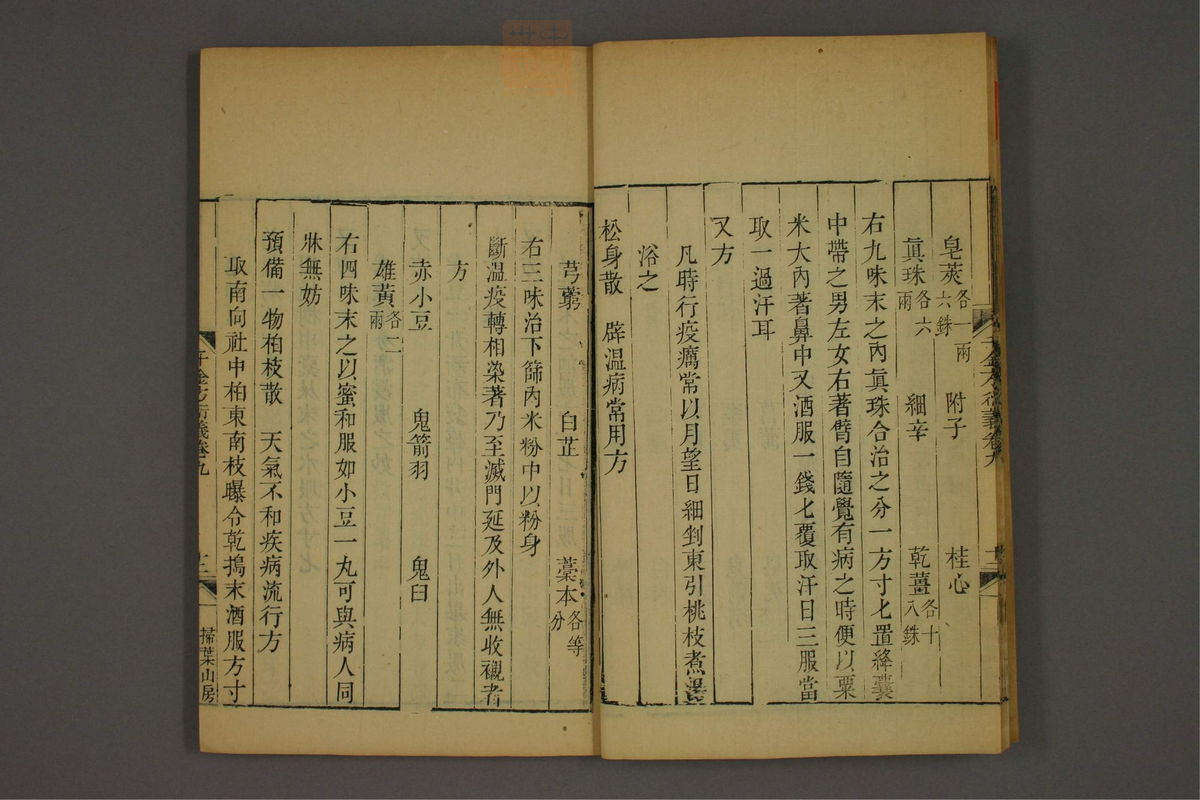 皂莢各一兩六銖 附子 桂心
眞珠各六兩 細辛 乾薑各十八銖
右九味末之內眞珠合治之分一方寸匕置絳囊
中帶之男左女右著臂自隨覺有病之時便以粟
米大內著鼻中又酒服一錢匕覆取汗日三服當
取一過汗耳
又方
凡時行疫癘常以月望日細剉東引桃枝煮湯
浴之
松身散 辟温病常用方
芎藭 白芷 藁本各等分
右三味治下篩內米粉中以粉身
斷温疫轉相染著乃至滅門延及外人無收視者
方
赤小豆 鬼箭羽 鬼臼
雄黃各二兩
右四味末之以蜜和服如小豆一丸可與病人同
牀無妨
預備一物柏枝散 天氣不和疾病流行方
取南向社中柏東南枝曝令乾搗末酒服方寸
千金方衍義卷九 十二 掃葉山房